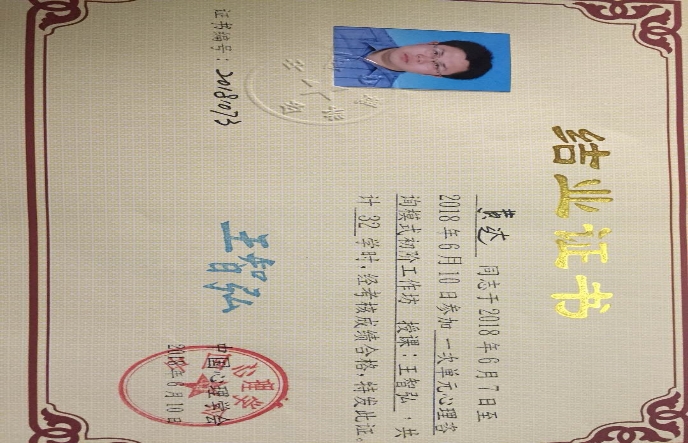 结业证书
黄达 同志于 2018 年 6 月 7 日至
2018 年 6 月 10 日参加 一次单元心理咨
询模式初阶工作坊 授课：王智弘 ，共
计 32 学时，经考核成绩合格，特发此证。
证书编号：20181073
王智弘
中国心理学会
2018年 6 月 10 日